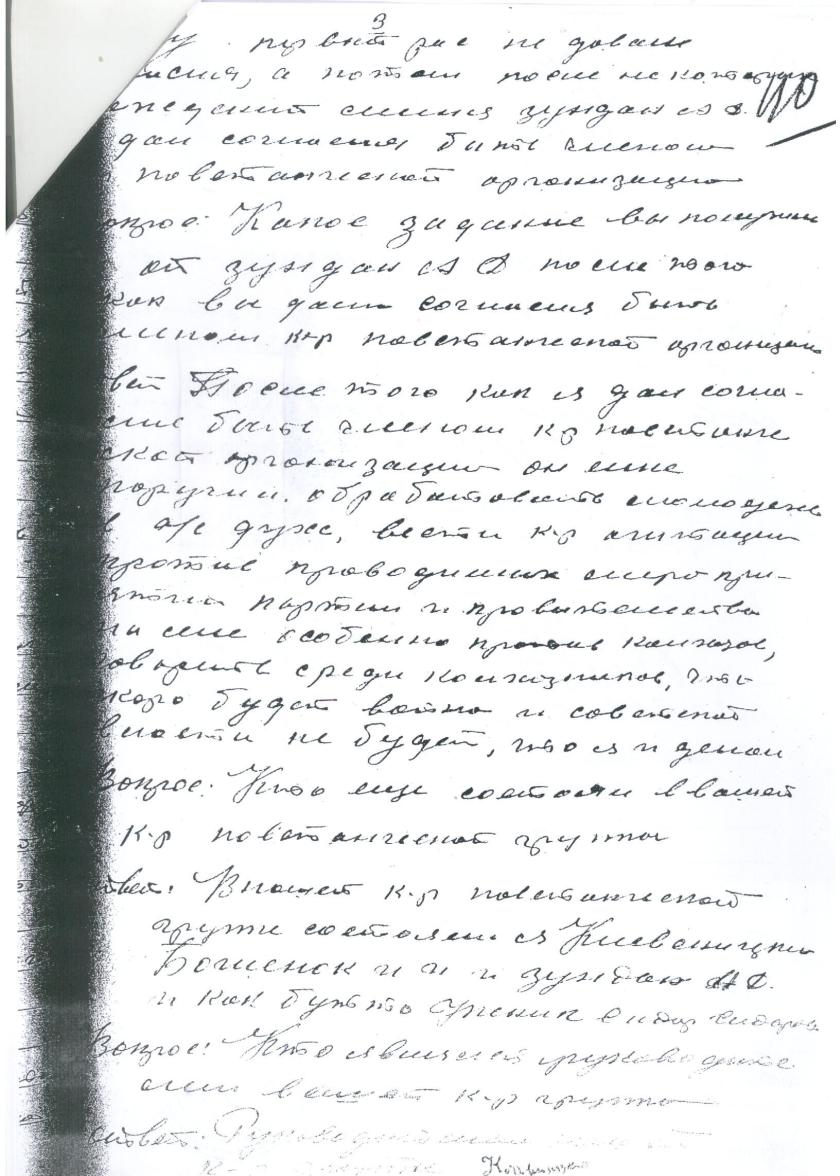 3
у. первый раз не давал
ласия, а потом после некоторых
110
Зундан А Д.
дал согласия быть членом
повстанческой организации
опрос: Какое задание вы получили
от Зундан А Д после того
как вы дали согласия быть
членом к-р повстанческой организации
вет После того как я дал согла-
сие быть членом кр повстанче
ской организации он мне
поручил обрабатовать молодежь
в а/с духе, вести к-р агитации
против проводимых меро при-
ятий партии и правительства
на селе особенно против колхозов,
говорить среди колхозников, что
скоро будет война и советской
власти не будет, что я и делал
Вопрос: Кто еще состоял в вашей
к-р повстанческой группы
ответ: В нашей к-р повстанческой
групе состояли я
и и и Зундан А Д.
и как бутто
Вопрос: Кто являлся руководите
лем вашей к-р группы
ответ: Руководителем нашей
к-р